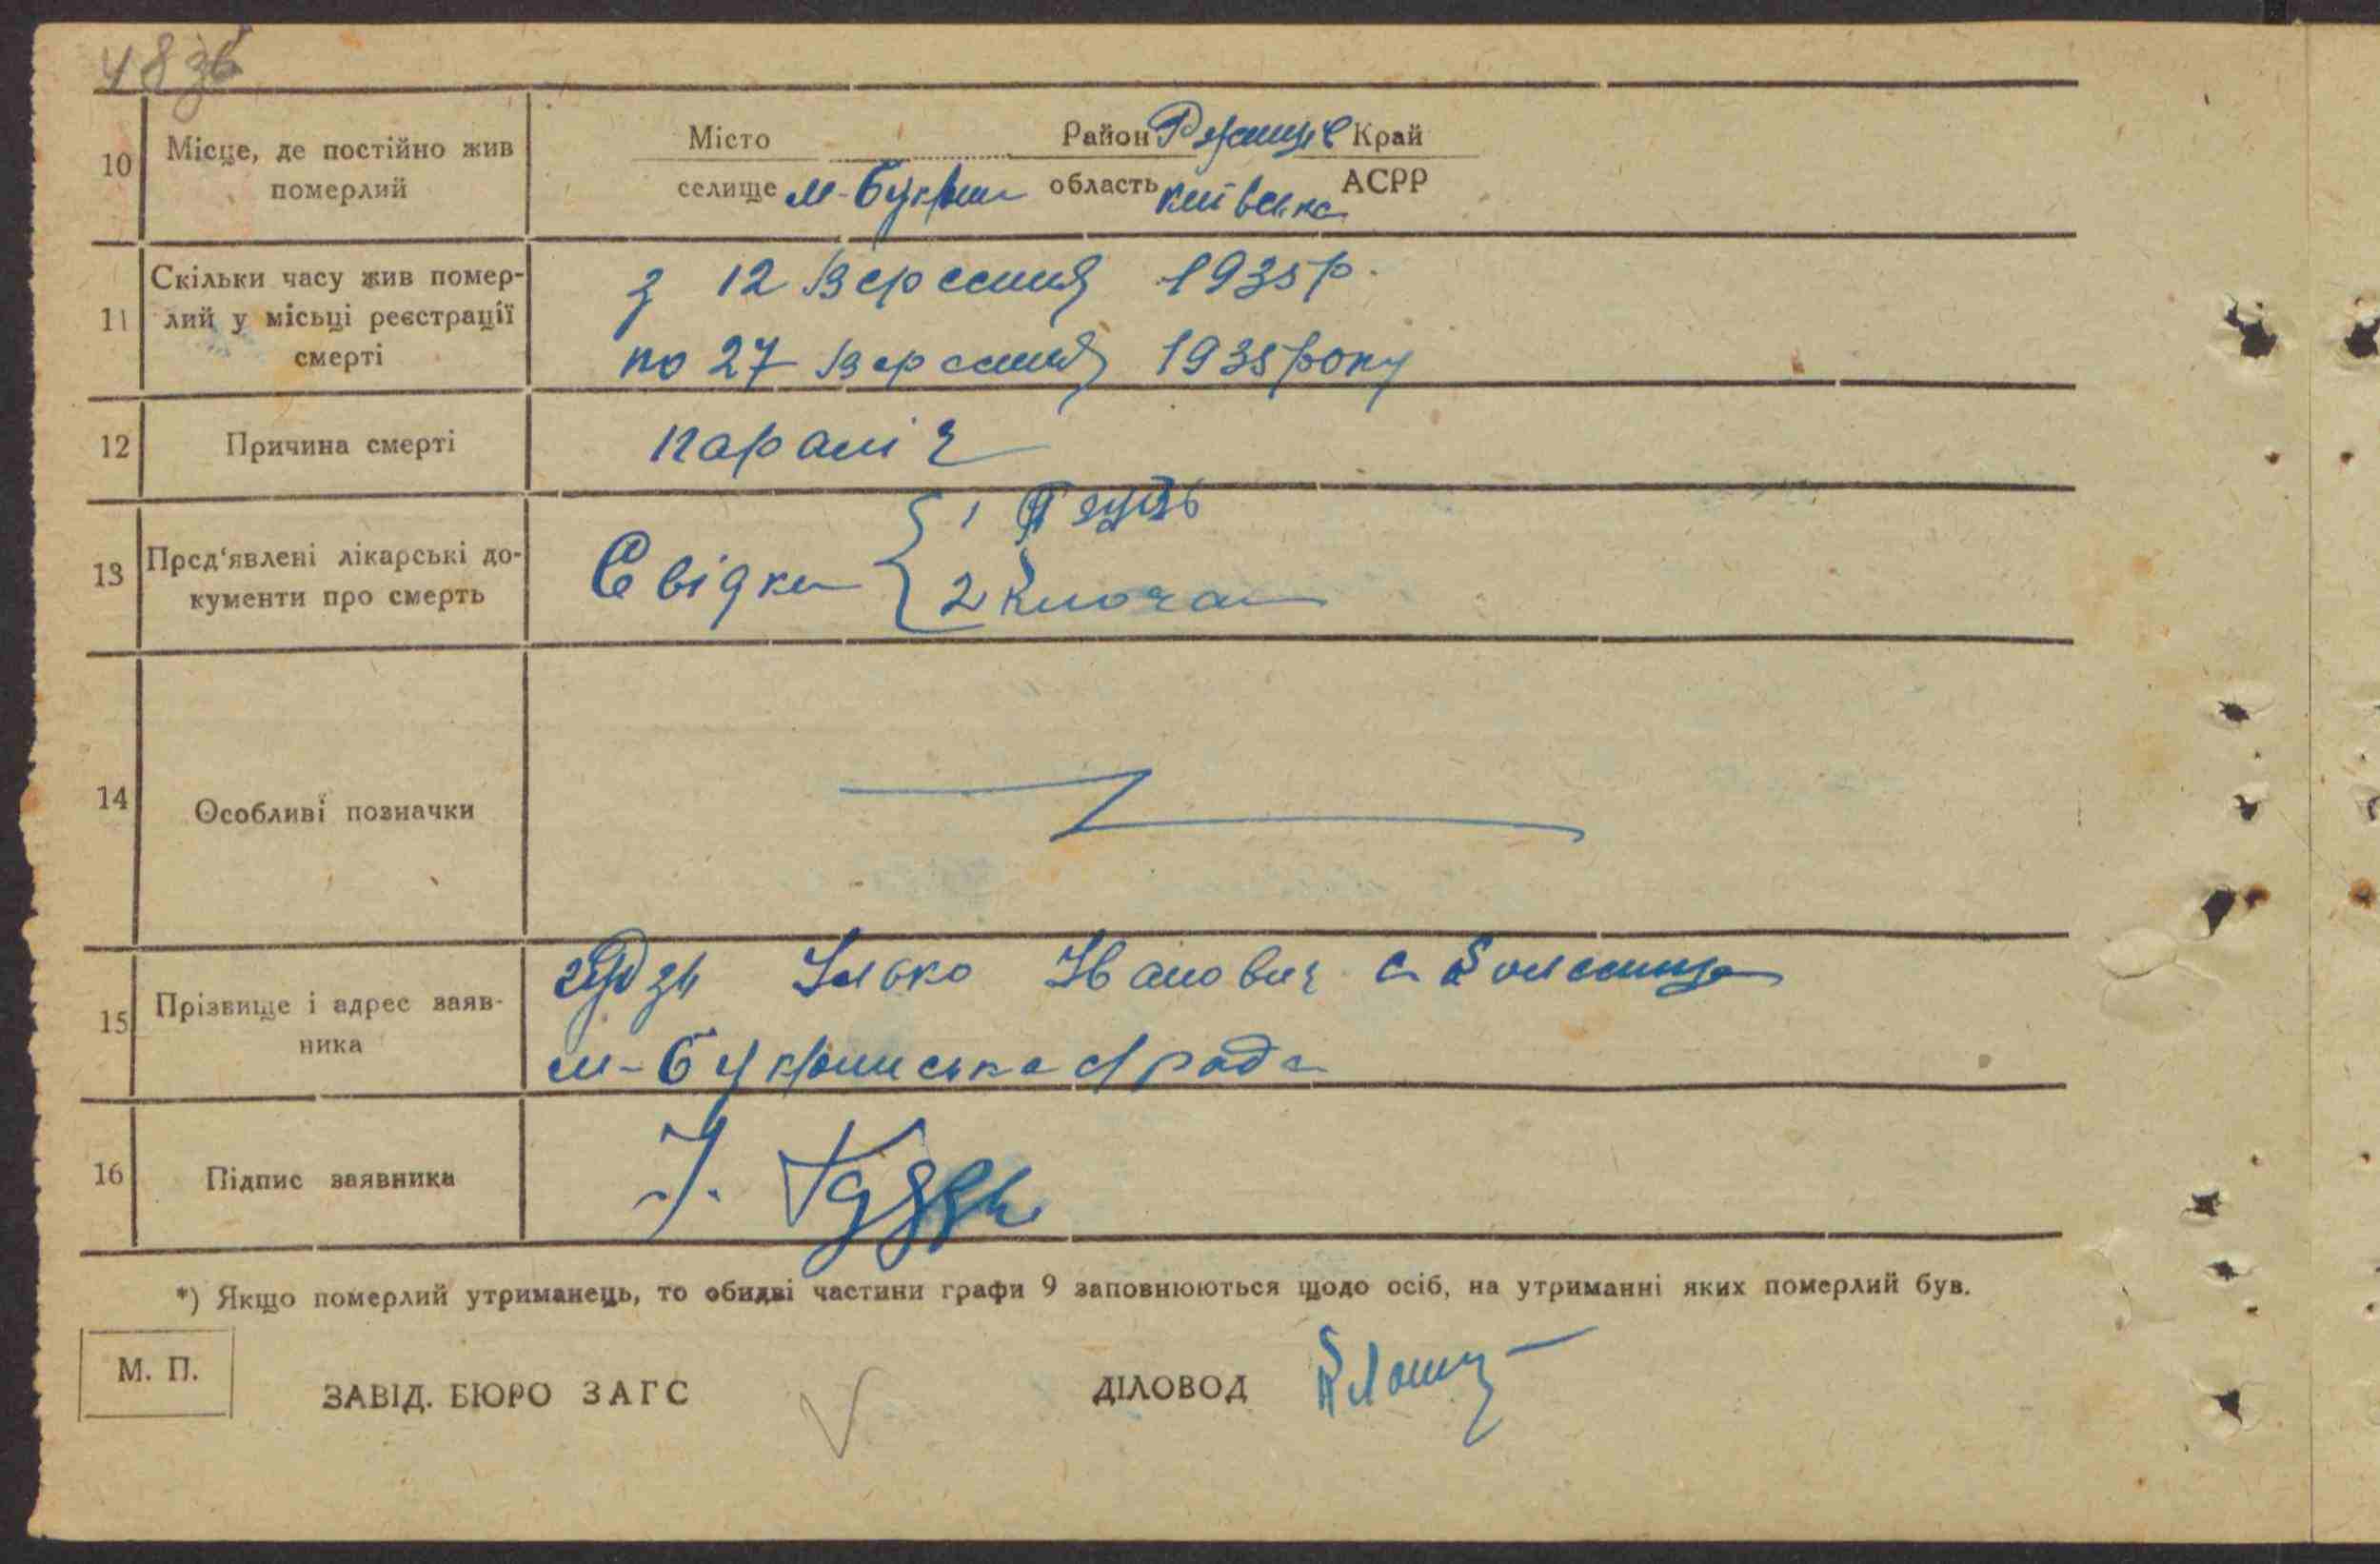 48 зв
10 Місце, де постійно жив померлий
Місто Район Ржищів Край
селище м-Букрин область київська АСРР
11 Скільки часу жив помер-
лий у місьці реєстрації
смерті
з 12 Вересня 1935 р.
по 27 Вересня 1935 року
12 Причина смерті параліч
13 Пред'явлені лікарські до-
кументи про смерть
Свідки 1
2
14 Особливі позначки
15 Прізвище і адрес заяв-
ника
Ілько Іванович с.
м-Букринська с/рада
16 Підпис заявника
*) Якщо померлий утриманець, то обидві частини графи 9 заповнюються щодо осіб, на утриманні яких померлий був.
М. П.
ЗАВІД. БЮРО ЗАГС ДІЛОВОД